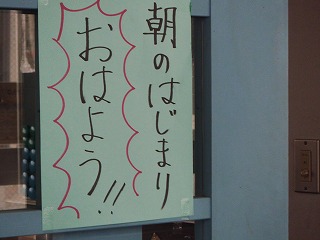 朝のはじまり
おはよう!!